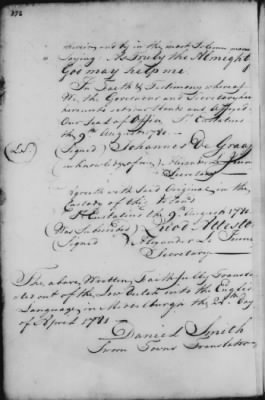 376
therein and by in the most Solemn manner
Saying. As Truly the Almighty
God may help me.
In Faith & Testimony whereof
We, the Governor and Secretary have
hereunto set our Hands and affixed
Our Seal of Office St Eustatius
the 9th August 1780.
(LS) Signed) Johannes De Graaf
Secretary
agreeth with said Original in the
Custody of this Island
St Eustatius the 9th August 1780.
(Was Subscribed) Quod Attestor
Signed Alexander
Secretary
The above Written, Faithfully Transl
ated out of the Low Dutch into the English
Language in Middelburgh the 28th Day
of April 1781
Daniel Smith
Sworn Town Translator